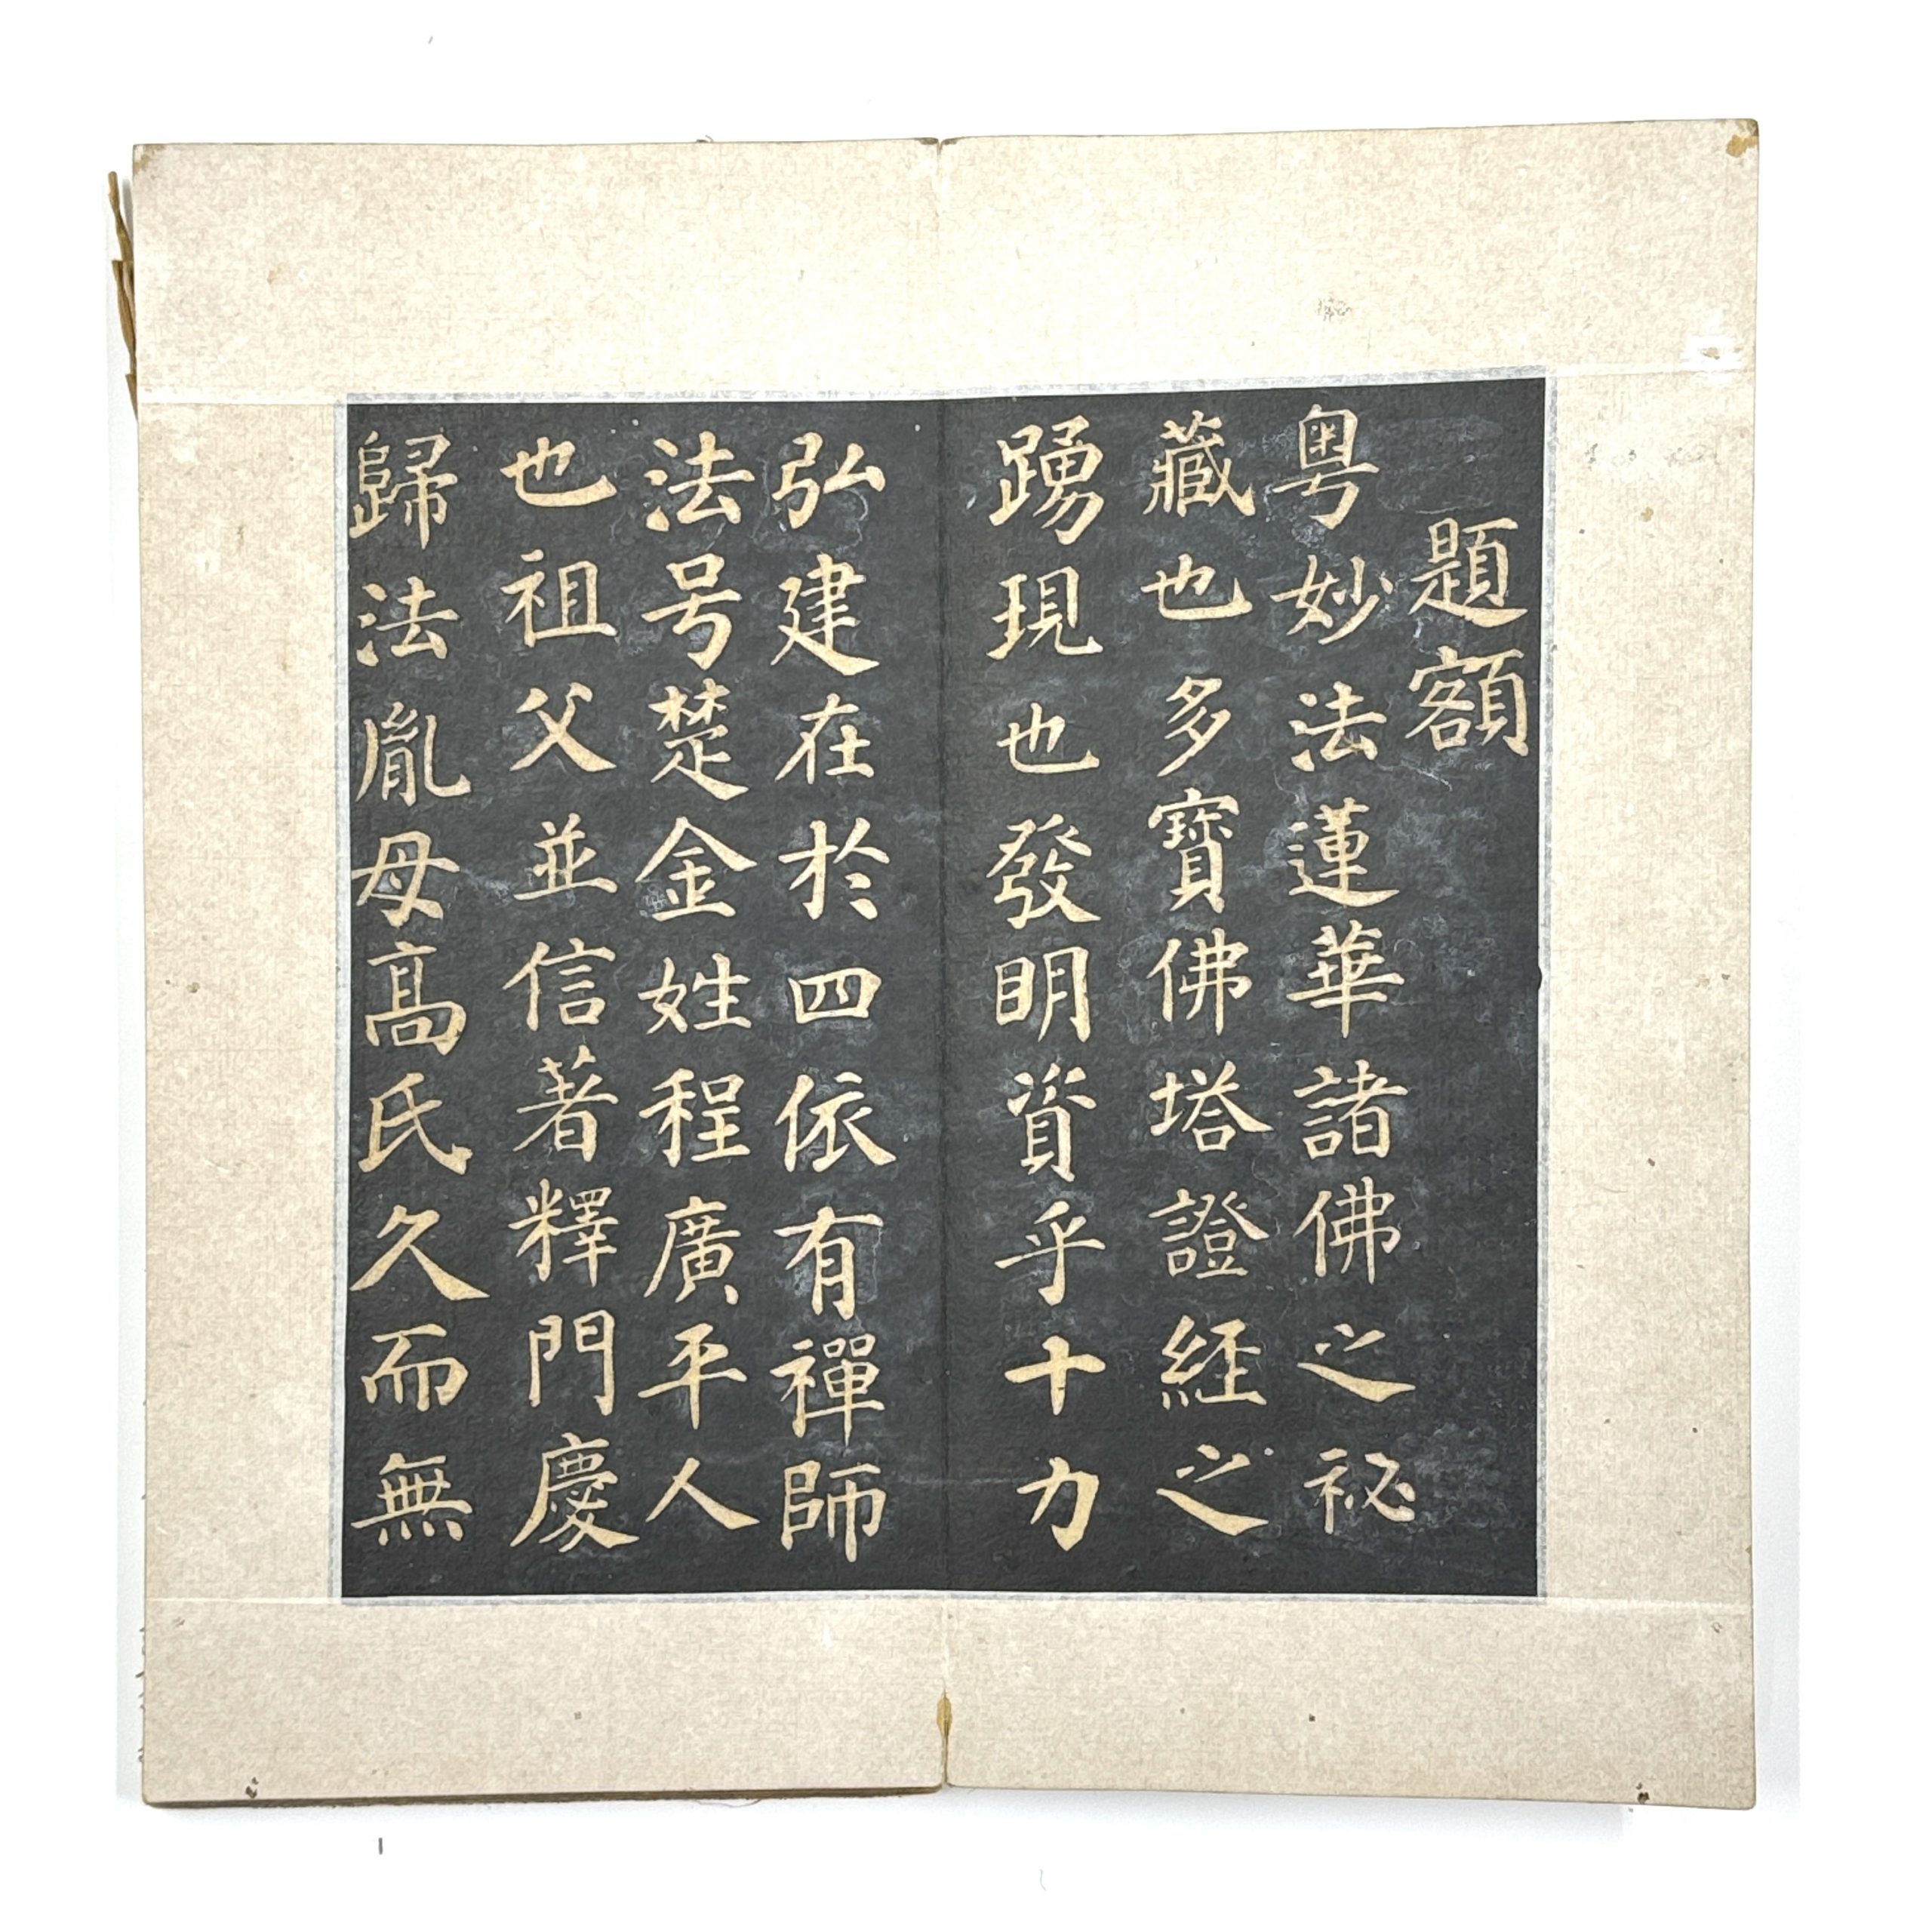 題額
粵妙法蓮華諸佛之祕
藏也多寶佛塔證経之
踴現也發明資乎十力
弘建在於四依有禪師
法号楚金姓程廣平人
也祖父並信著釋門慶
歸法胤母髙氏久而無